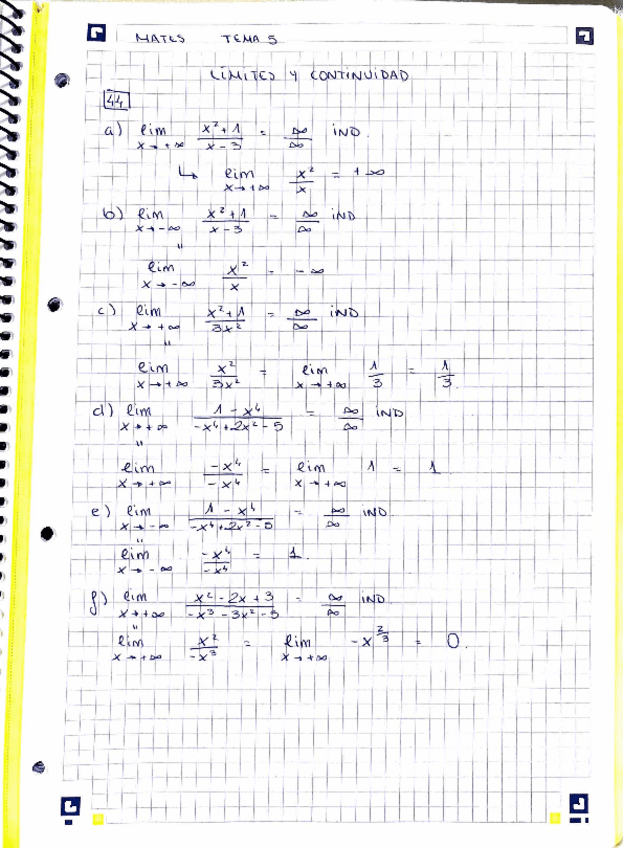 MATES TEMA 5
LÍMITES Y CONTINUIDAD
44
a) lim x→+∞ (x²+1)/(x-3) = ∞/∞ IND.
↳ lim x→+∞ x²/x = +∞
b) lim x→-∞ (x²+1)/(x-3) = ∞/∞ IND
"
lim x→-∞ x²/x = -∞
c) lim x→+∞ (x²+1)/(3x²) = ∞/∞ IND
"
lim x→+∞ x²/(3x²) = lim x→+∞ 1/3 = 1/3.
d) lim x→+∞ (1-x⁴)/(-x⁴+2x²-5) = ∞/∞ IND
"
lim x→+∞ (-x⁴)/(-x⁴) = lim x→+∞ 1 = 1.
e) lim x→-∞ (1-x⁴)/(-x⁴+2x²-5) = ∞/∞ IND.
"
lim x→-∞ (-x⁴)/(-x⁴) = 1.
f) lim x→+∞ (x²-2x+3)/(-x³-3x²-5) = ∞/∞ IND.
"
lim x→+∞ x²/(-x³) = lim x→+∞ -x^(2/3) = 0.